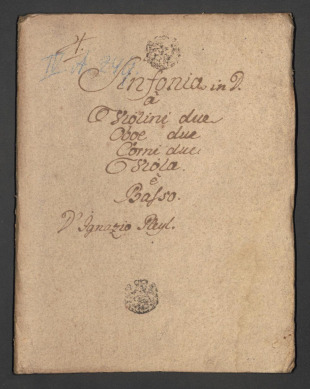 4.
Sinfonia in D.
à
Violini due
Oboe due
Corni due
Viola.
e
Basso.
D' Ignazio Pleyl.